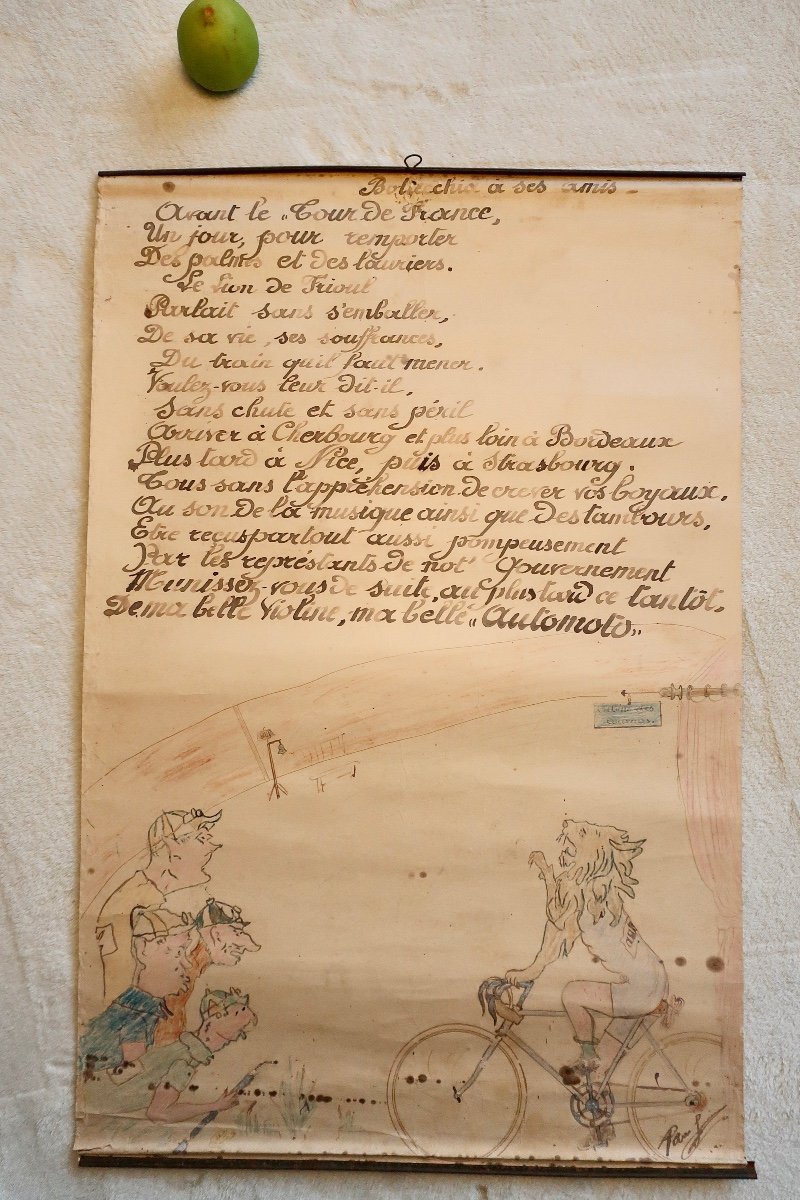 à ses amis -
Avant le „Tour de France,
Un jour, pour remporter
Des palmes et des lauriers.
Le Lion de Frioul
Parlait sans s'emballer,
De sa vie, ses souffrances,
Du train qu'il faut mener.
Voulez-vous leur dit-il,
Sans chute et sans péril
Arriver à Cherbourg et plus loin à Bordeaux
Plus tard à Nice, puis à Strasbourg.
Tous sans l'appréhension de crever vos boyaux,
Au son de la musique ainsi que des tambours,
Etre reçus partout aussi pompeusement
Par les représtants de not' Gouvernement
Munissez-vous de suite, au plus tard ce tantôt,
De ma belle Violine, ma belle „Automoto„